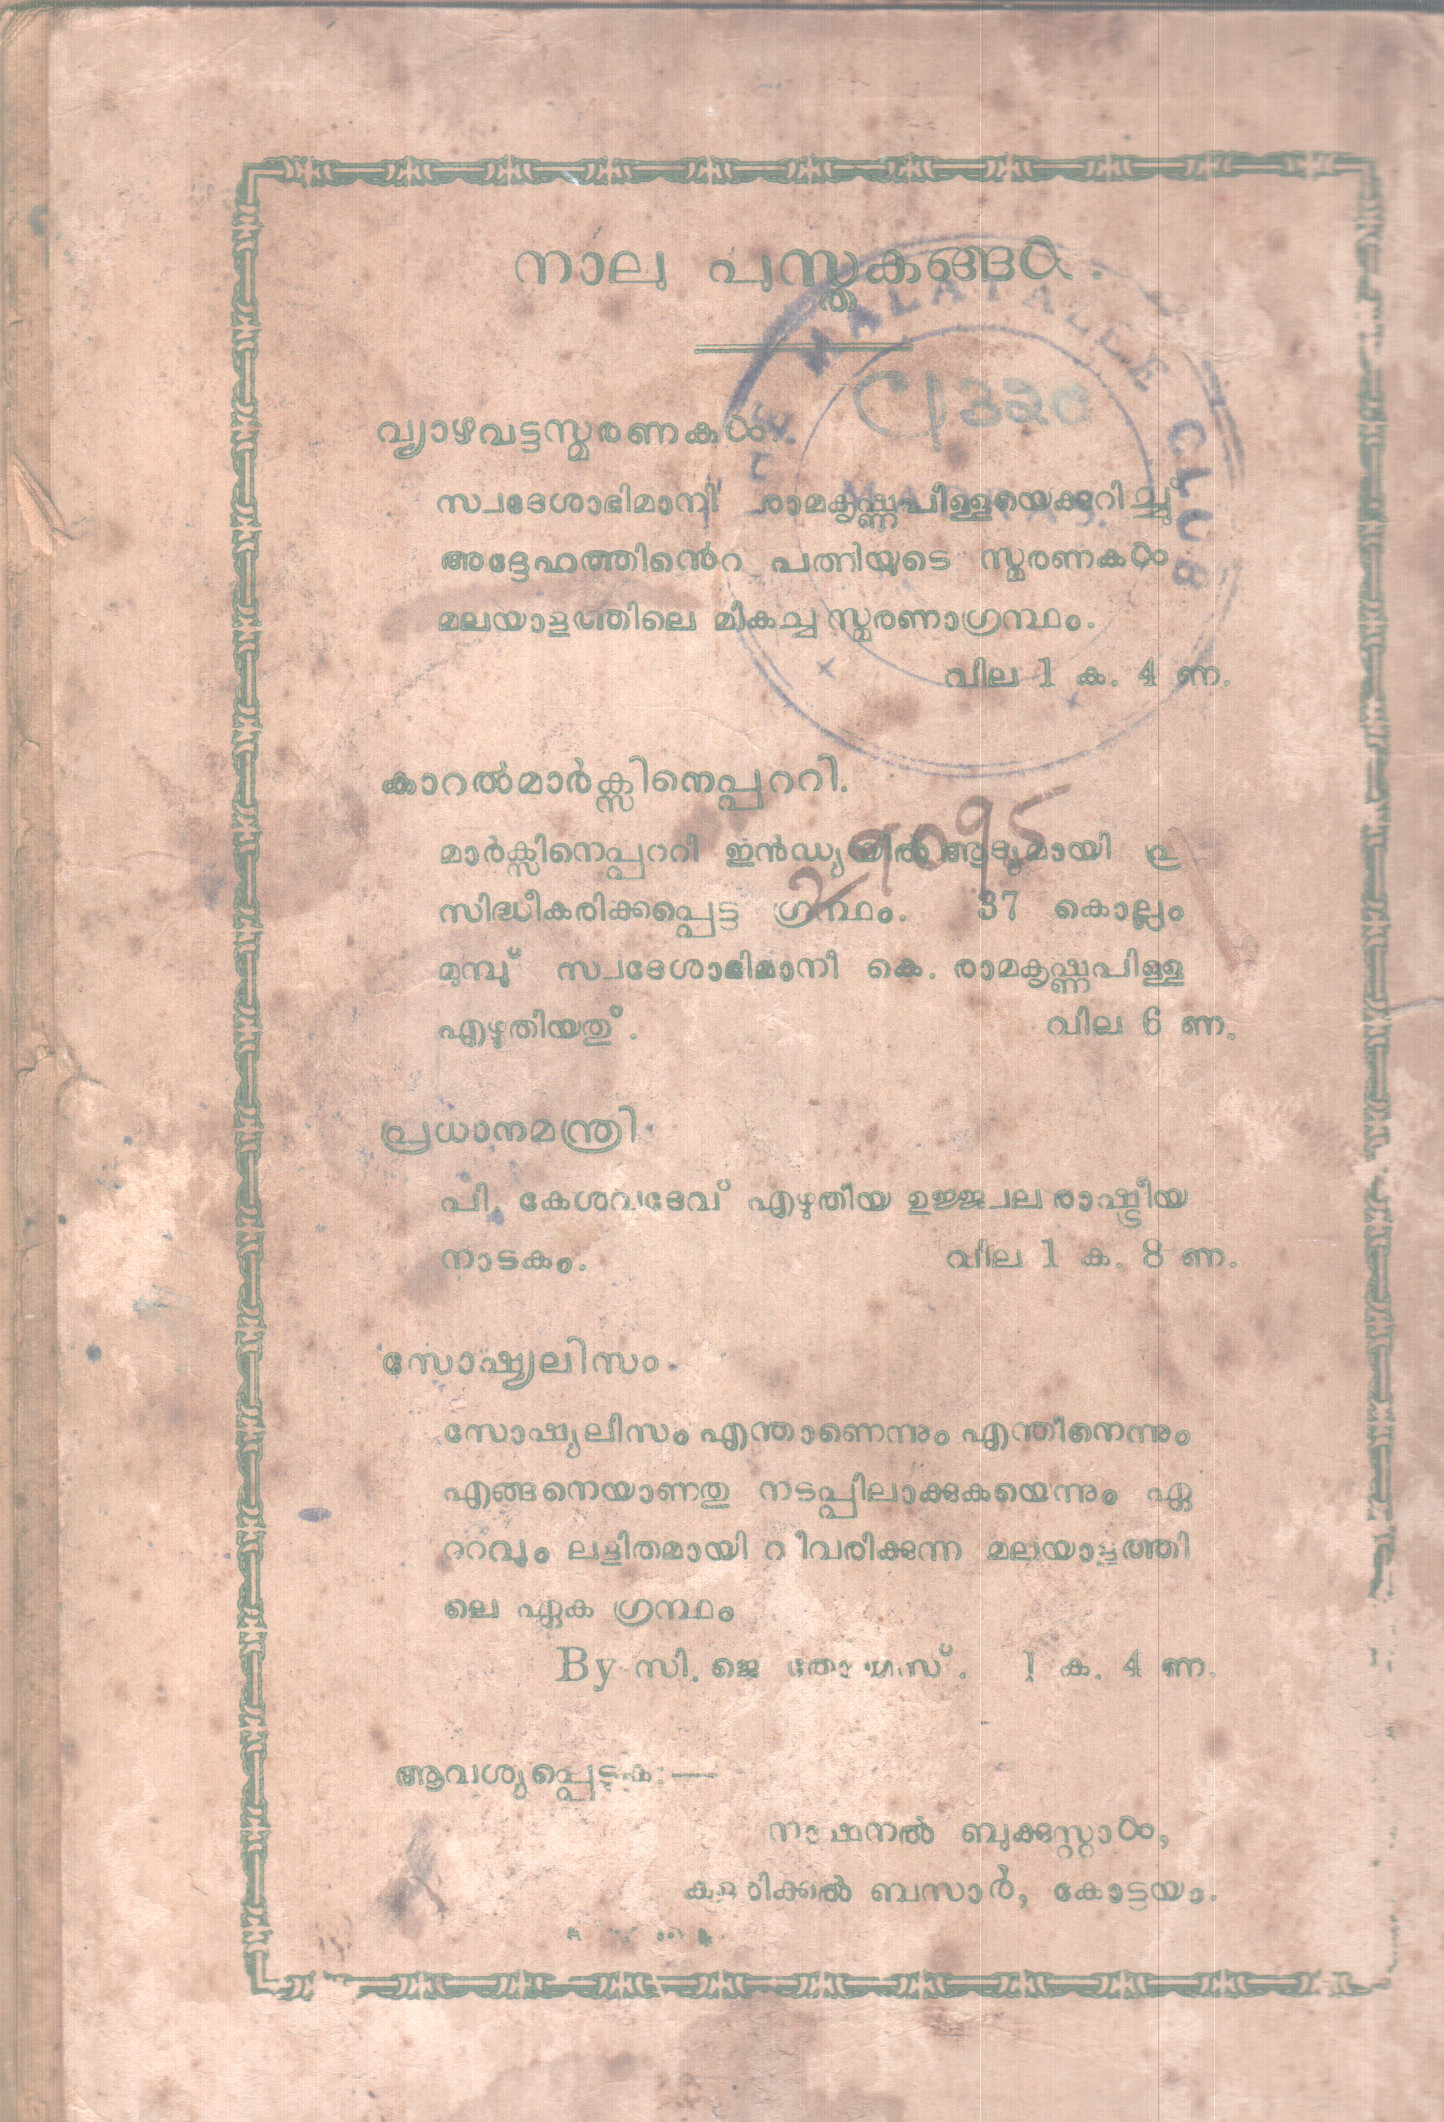 നാലു പുസ്തകങ്ങൾ.
THE MALAYALEE CLUB
MADRAS
വ്യാഴവട്ടസ്മരണകൾ.
സ്വദേശാഭിമാനി രാമകൃഷ്ണപിള്ളയെക്കുറിച്ചു്
അദ്ദേഹത്തിൻെറ പത്നിയുടെ സ്മരണകൾ
മലയാളത്തിലെ മികച്ച സ്മരണാഗ്രന്ഥം.
വില 1 ക. 4 ണ.
കാറൽമാർക്സിനെപ്പററി.
മാർക്സിനെപ്പററി ഇൻഡ്യയിൽ ആദ്യമായി പ്ര
സിദ്ധീകരിക്കപ്പെട്ട ഗ്രന്ഥം. 37 കൊല്ലം
മുമ്പു് സ്വദേശാഭിമാനി കെ. രാമകൃഷ്ണപിള്ള
എഴുതിയതു്. വില 6 ണ.
പ്രധാനമന്ത്രി
പി. കേശവദേവ് എഴുതിയ ഉജ്ജ്വല രാഷ്ട്രീയ
നാടകം. വില 1 ക. 8 ണ.
സോഷ്യലിസം.
സോഷ്യലിസം എന്താണെന്നും എന്തിനെന്നും
എങ്ങനെയാണതു നടപ്പിലാക്കുകയെന്നും ഏ
ററവും ലളിതമായി വിവരിക്കുന്ന മലയാളത്തി
ലെ ഏക ഗ്രന്ഥം
By സി. ജെ തോമസ്. 1 ക. 4 ണ.
ആവശ്യപ്പെടുക:—
നാഷനൽ ബുക്കുസ്റ്റാൾ,
ബസാർ, കോട്ടയം.